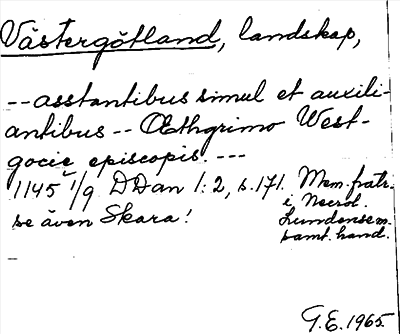 Västergötland, landskap,
-- asstantibus simul et auxili-
antibus -- Œthgrimo West-
gocie episcopis. ---
1145 1/9 DDan 1:2, s. 171. Mem. fratr.
i Necrol.
se även Skara! Lundense m.
samt. hand.
G.E. 1965.